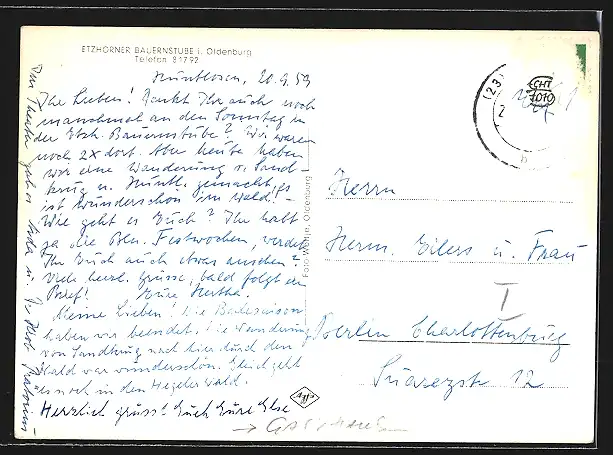 ETZHORNER BAUERNSTUBE i. Oldenburg
Telefon 81792
Huntlosen, 20.9.59
Ihr Lieben! Denkt Ihr auch noch
manchmal an den Sonntag in
der Etzh. Bauernstube? Wir waren
noch 2x dort. Aber heute haben
wir eine Wanderung v. Sand-
krug n. Huntl. gemacht, es
ist wunderschön im Wald! -
Wie geht es Euch? Ihr habt
ja die Bln. Festwochen, werdet
Ihr Euch auch etwas ansehen?
Viele herzl. Grüsse, bald folgt ein
Brief! Eure Hertha.
Meine Lieben! Die Badesaison
haben wir beendet. Die Wanderung
von Sandkrug nach hier durch den
Wald war wunderschön. Gleich geht
es noch in den Hegeler Wald.
Herzlich grüsst Euch Eure Else
Das Theater gab es
Foto Wehtje, Oldenburg
(23)
CHT
1010
b
Herrn
Herm. Eilers u. Frau
I
Berlin Charlottenburg
Suarezstr. 12